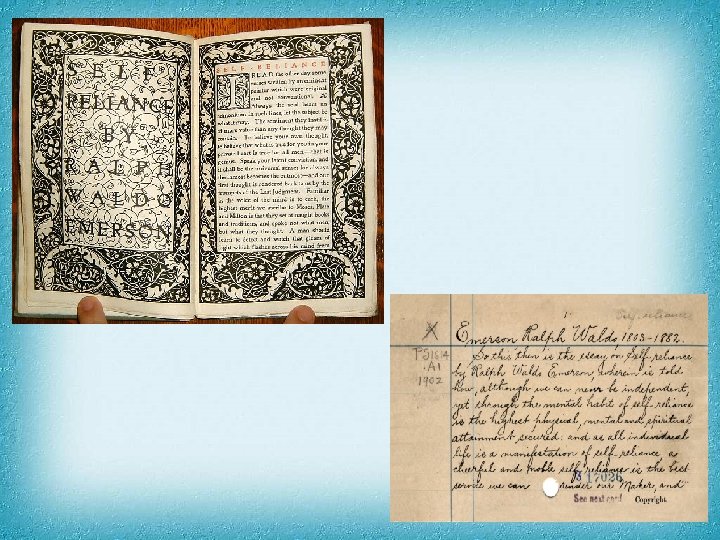 SELF
RELIANCE
BY
RALPH
WALDO
EMERSON
SELF-RELIANCE
I READ the other day some
verses written by an eminent
painter which were original
and not conventional.
Always the soul hears an
admonition in such lines, let the subject be
what it may. The sentiment they instil is
of more value than any thought they may
contain. To believe your own thought,
to believe that what is true for you in your
private heart is true for all men,—that is
genius. Speak your latent conviction and
it shall be the universal sense; for always
the inmost becomes the outmost—and our
first thought is rendered back to us by the
trumpets of the Last Judgment. Familiar
as the voice of the mind is to each, the
highest merit we ascribe to Moses, Plato
and Milton is that they set at naught books
and traditions, and spoke not what men,
but what they thought. A man should
learn to detect and watch that gleam of
light which flashes across his mind from
Self-reliance
X
PS1614
.A1
1902
Emerson Ralph Waldo, 1803-1882.
So this then is the essay on Self-reliance
by Ralph Waldo Emerson, wherein is told
how, although we can never be independent,
yet through the mental habit of self-reliance
is the highest physical, mental and spiritual
attainment secured: and as all individual
life is a manifestation of self-reliance a
cheerful and noble self-reliance is the best
service we can render our Maker, and
17026
See next card
Copyright